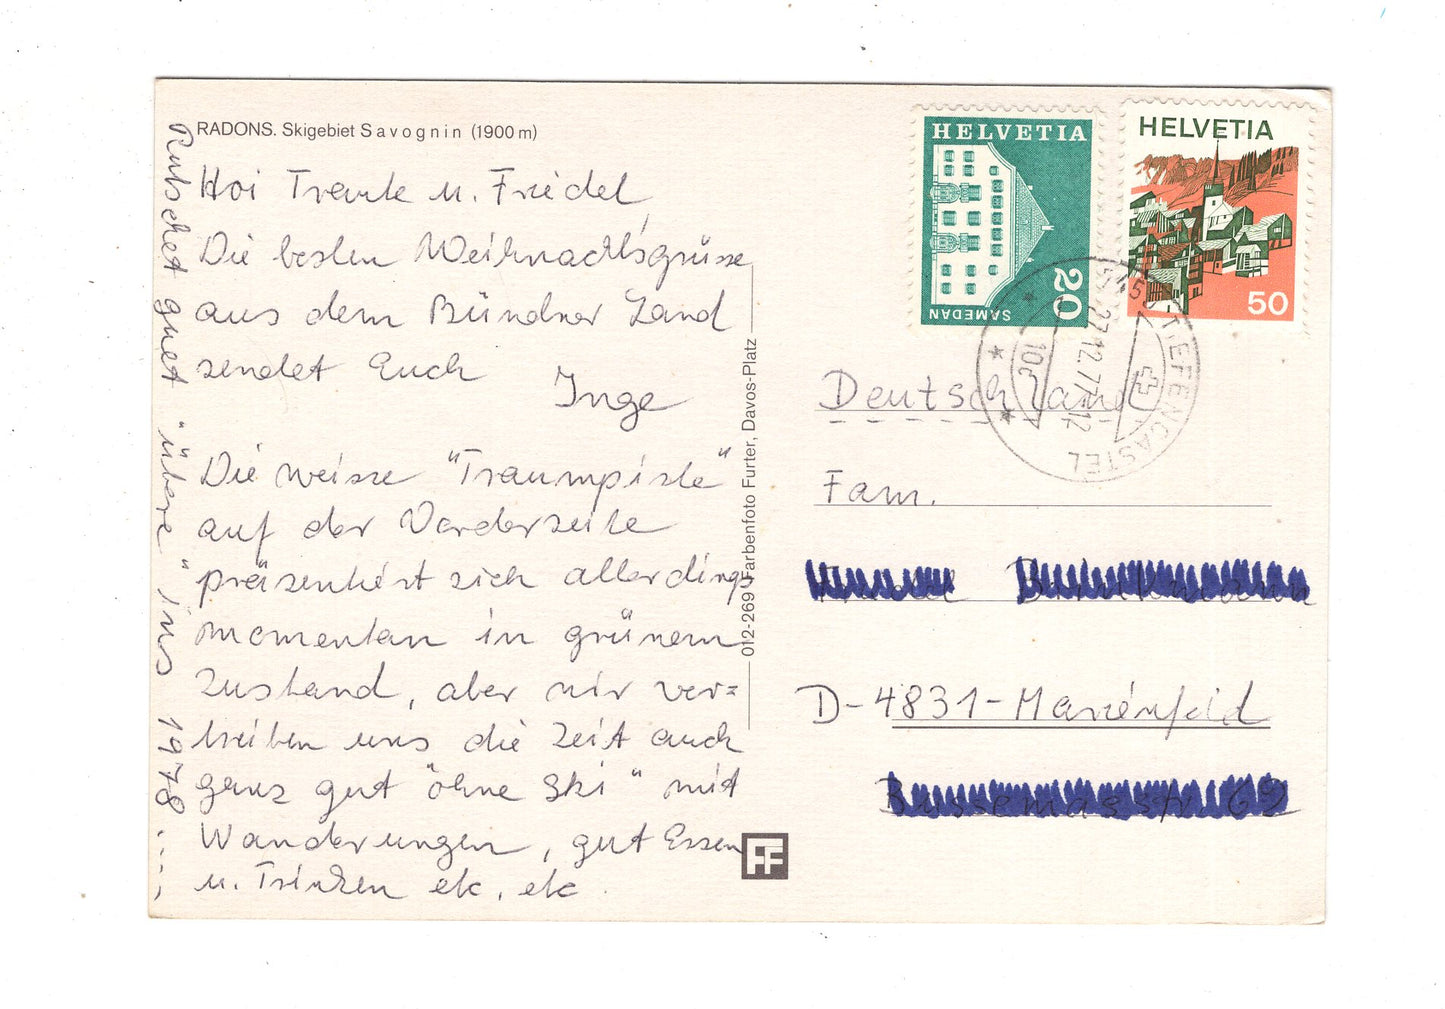 RADONS. Skigebiet Savognin (1900 m)
Hoi Traute u. Friedel,
Die besten Weihnachtsgrüsse
aus dem Bündner Land
sendet Euch
Inge
Die weisse "Traumpiste"
auf der Vorderseite
präsentiert sich allerdings
momentan in grünem
Zustand, aber wir ver=
treiben uns die Zeit auch
ganz gut "ohne Ski" mit
Wanderungen, gut Essen
u. Trinken etc. etc.
Rutschet guet "übere" ins 1978 ....,
012-269 Farbenfoto Furter, Davos-Platz
FF
HELVETIA
20
SAMEDAN
HELVETIA
50
TIEFENCASTEL
27.12.77-12
10c
Deutschland
Fam.
D-4831-Marienfeld